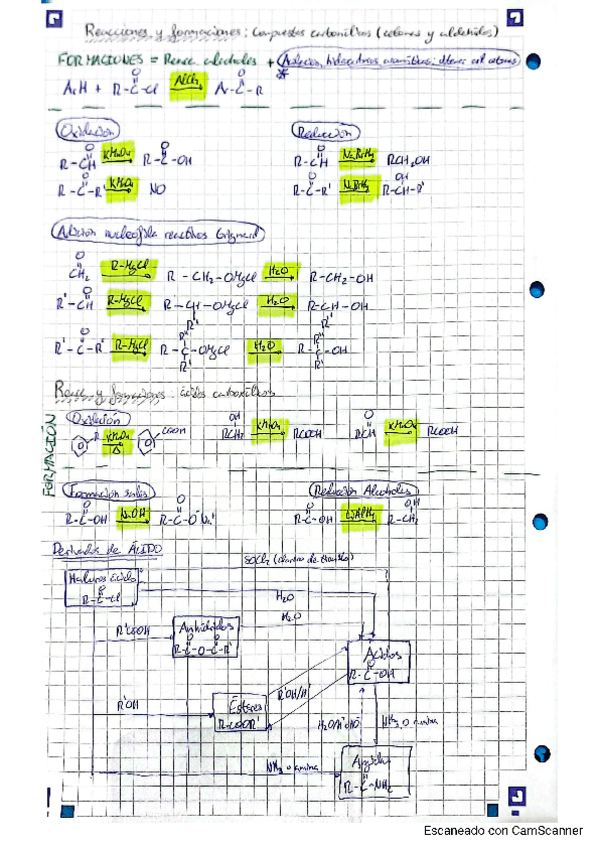 Reacciones y formaciones: Compuestos carbonílicos (cetonas y aldehídos)
FORMACIONES = Reacc. alcoholes + Adición hidrocarburos aromáticos: obtener cetonas
*
ArH + R-C-Cl AlCl3 Ar-C-R
O O
Oxidación
O O
R-CH KMnO4 R-C-OH
O
R-C-R' KMnO4 NO
Reducción
O
R-CH NaBH4 RCH2OH
O OH
R-C-R' NaBH4 R-CH-R'
Adición nucleofila reactivos Grignard
O
CH2 R-MgCl R-CH2-OMgCl H2O R-CH2-OH
O
R'-CH R-MgCl R-CH-OMgCl H2O R-CH-OH
R' R'
O R' R'
R'-C-R' R-MgCl R-C-OMgCl H2O R-C-OH
R' R'
Reacc. y formaciones: ácidos carboxílicos
FORMACIÓN
Oxidación
R KMnO4 COOH
Δ
OH
RCH2 KMnO4 RCOOH
O
RCH KMnO4 RCOOH
Formación sales
O O
R-C-OH NaOH R-C-O⁻Na⁺
Reducción Alcoholes
O OH
R-C-OH LiAlH4 R-CH2
Derivados de ÁCIDO
SOCl2 (cloruro de tionilo)
Haluros ácido
O
R-C-Cl
H2O
H2O
R'COOH
Anhídridos
O O
R-C-O-C-R'
Ácidos
O
R-C-OH
R'OH
Ésteres
R-COOR'
R'OH/H⁺
NH3 o amina
NH3 o amina
Amidas
O
R-C-NH2
Escaneado con CamScanner